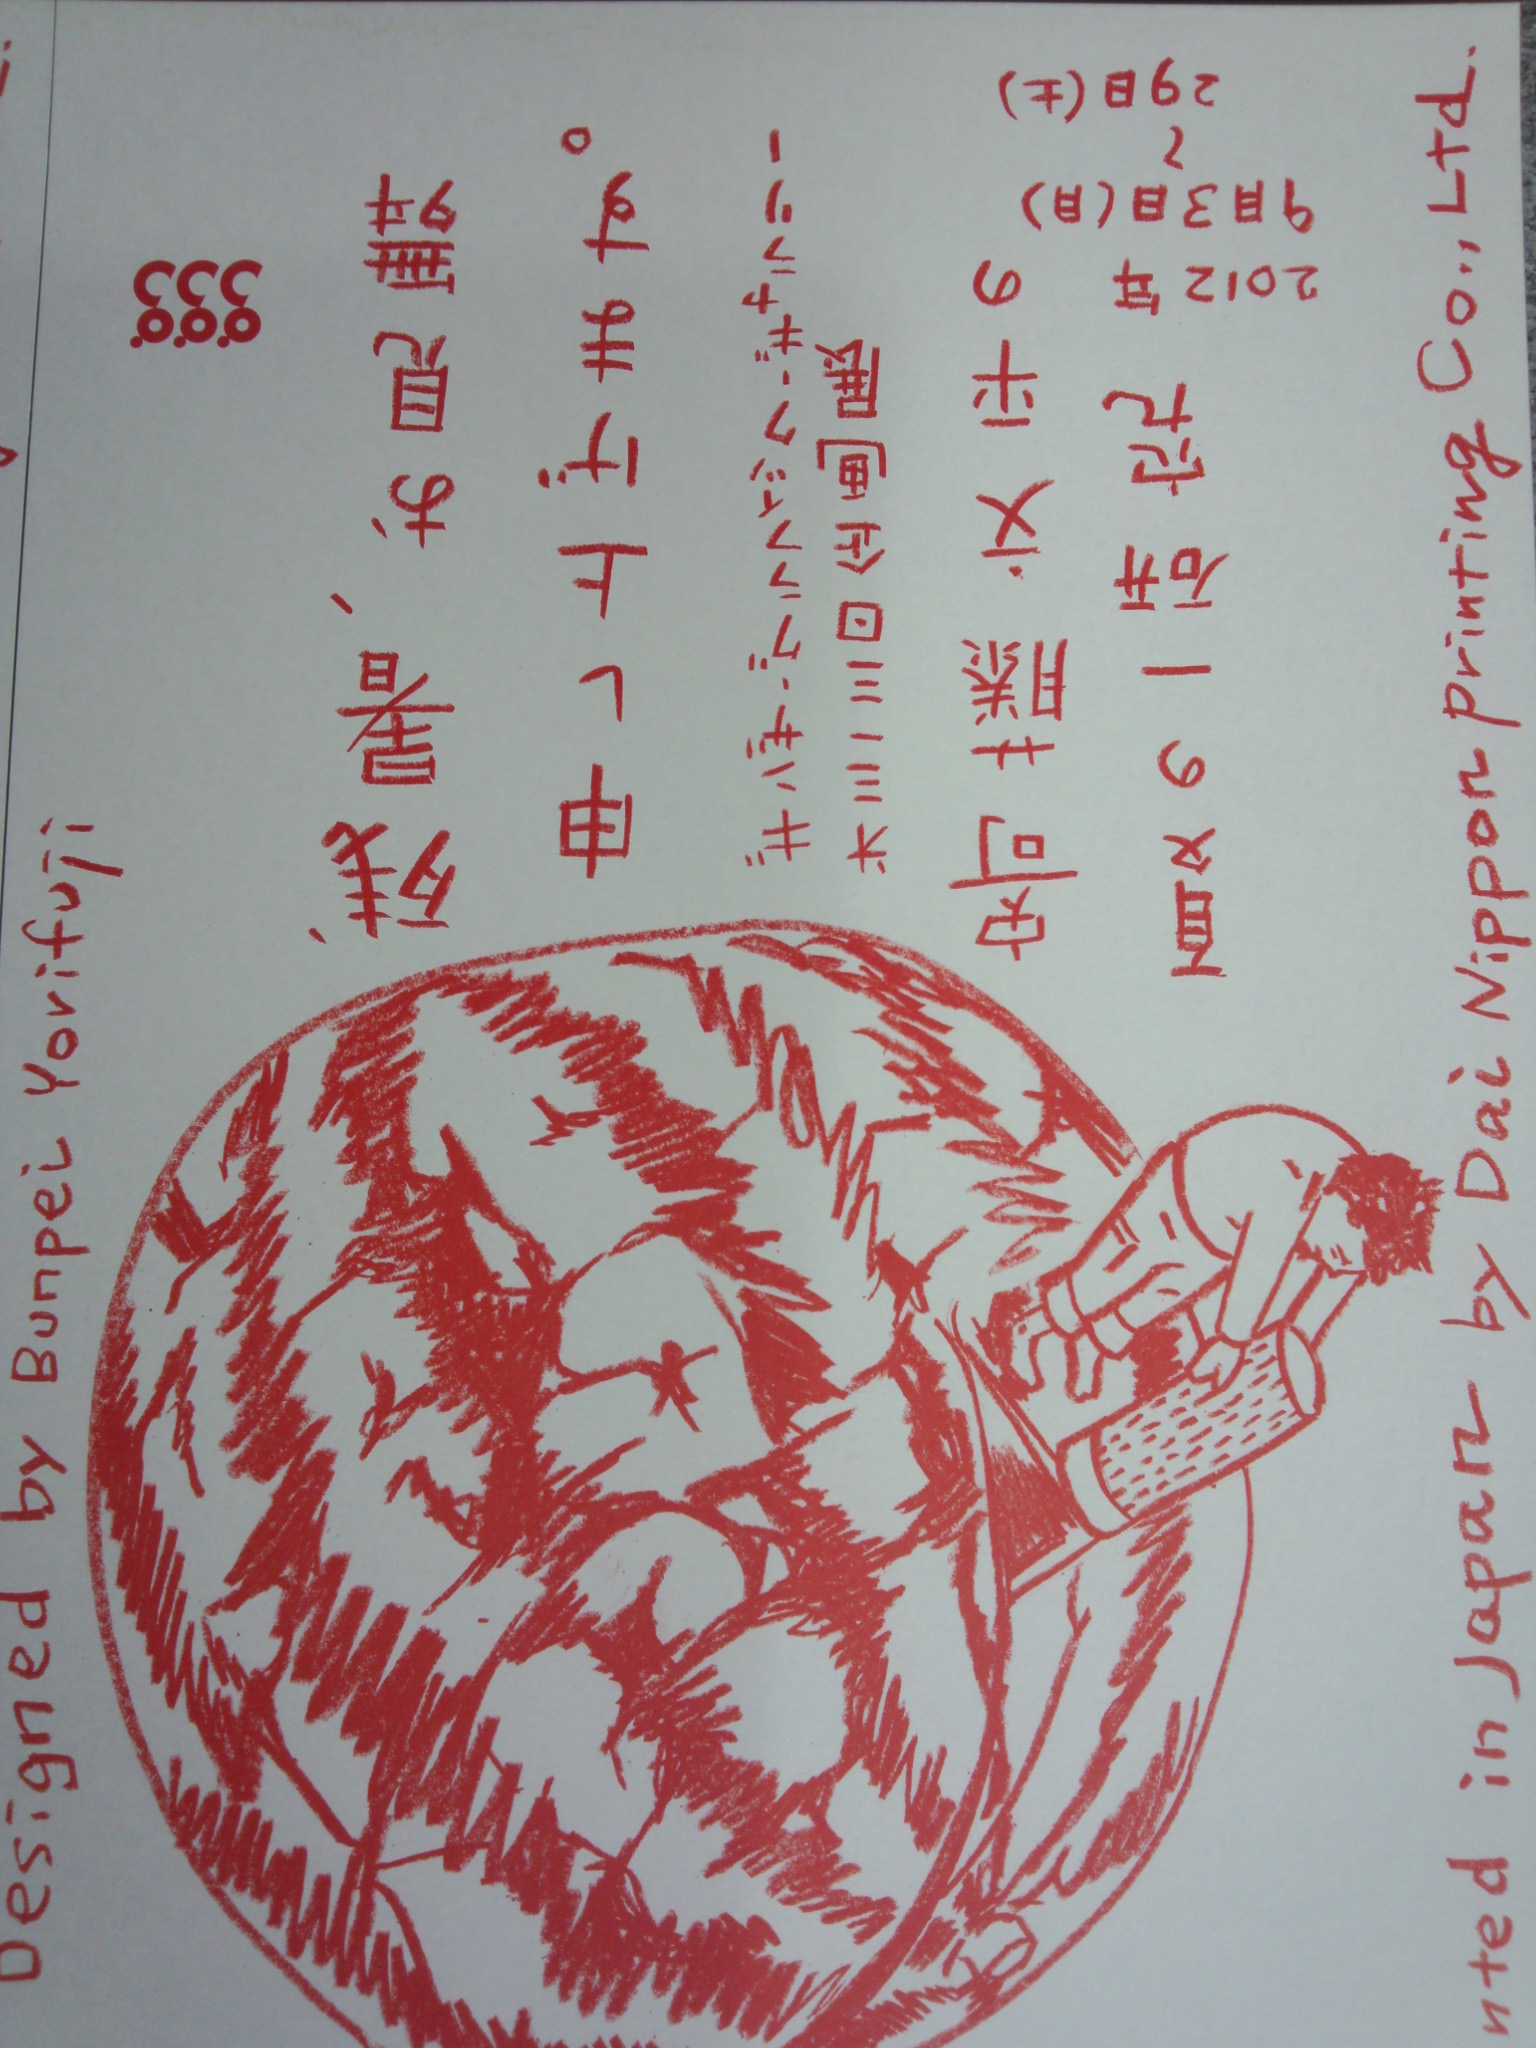 Designed by Bunpei Yorifuji
ggg
残暑、お見舞
申し上げます。
ギンザ・グラフィック・ギャラリー
第三一三回企画展
寄藤文平の
夏の一研究
2012年
9月3日(月)
〜
29日(土)
nted in Japan by Dai Nippon printing Co., Ltd.